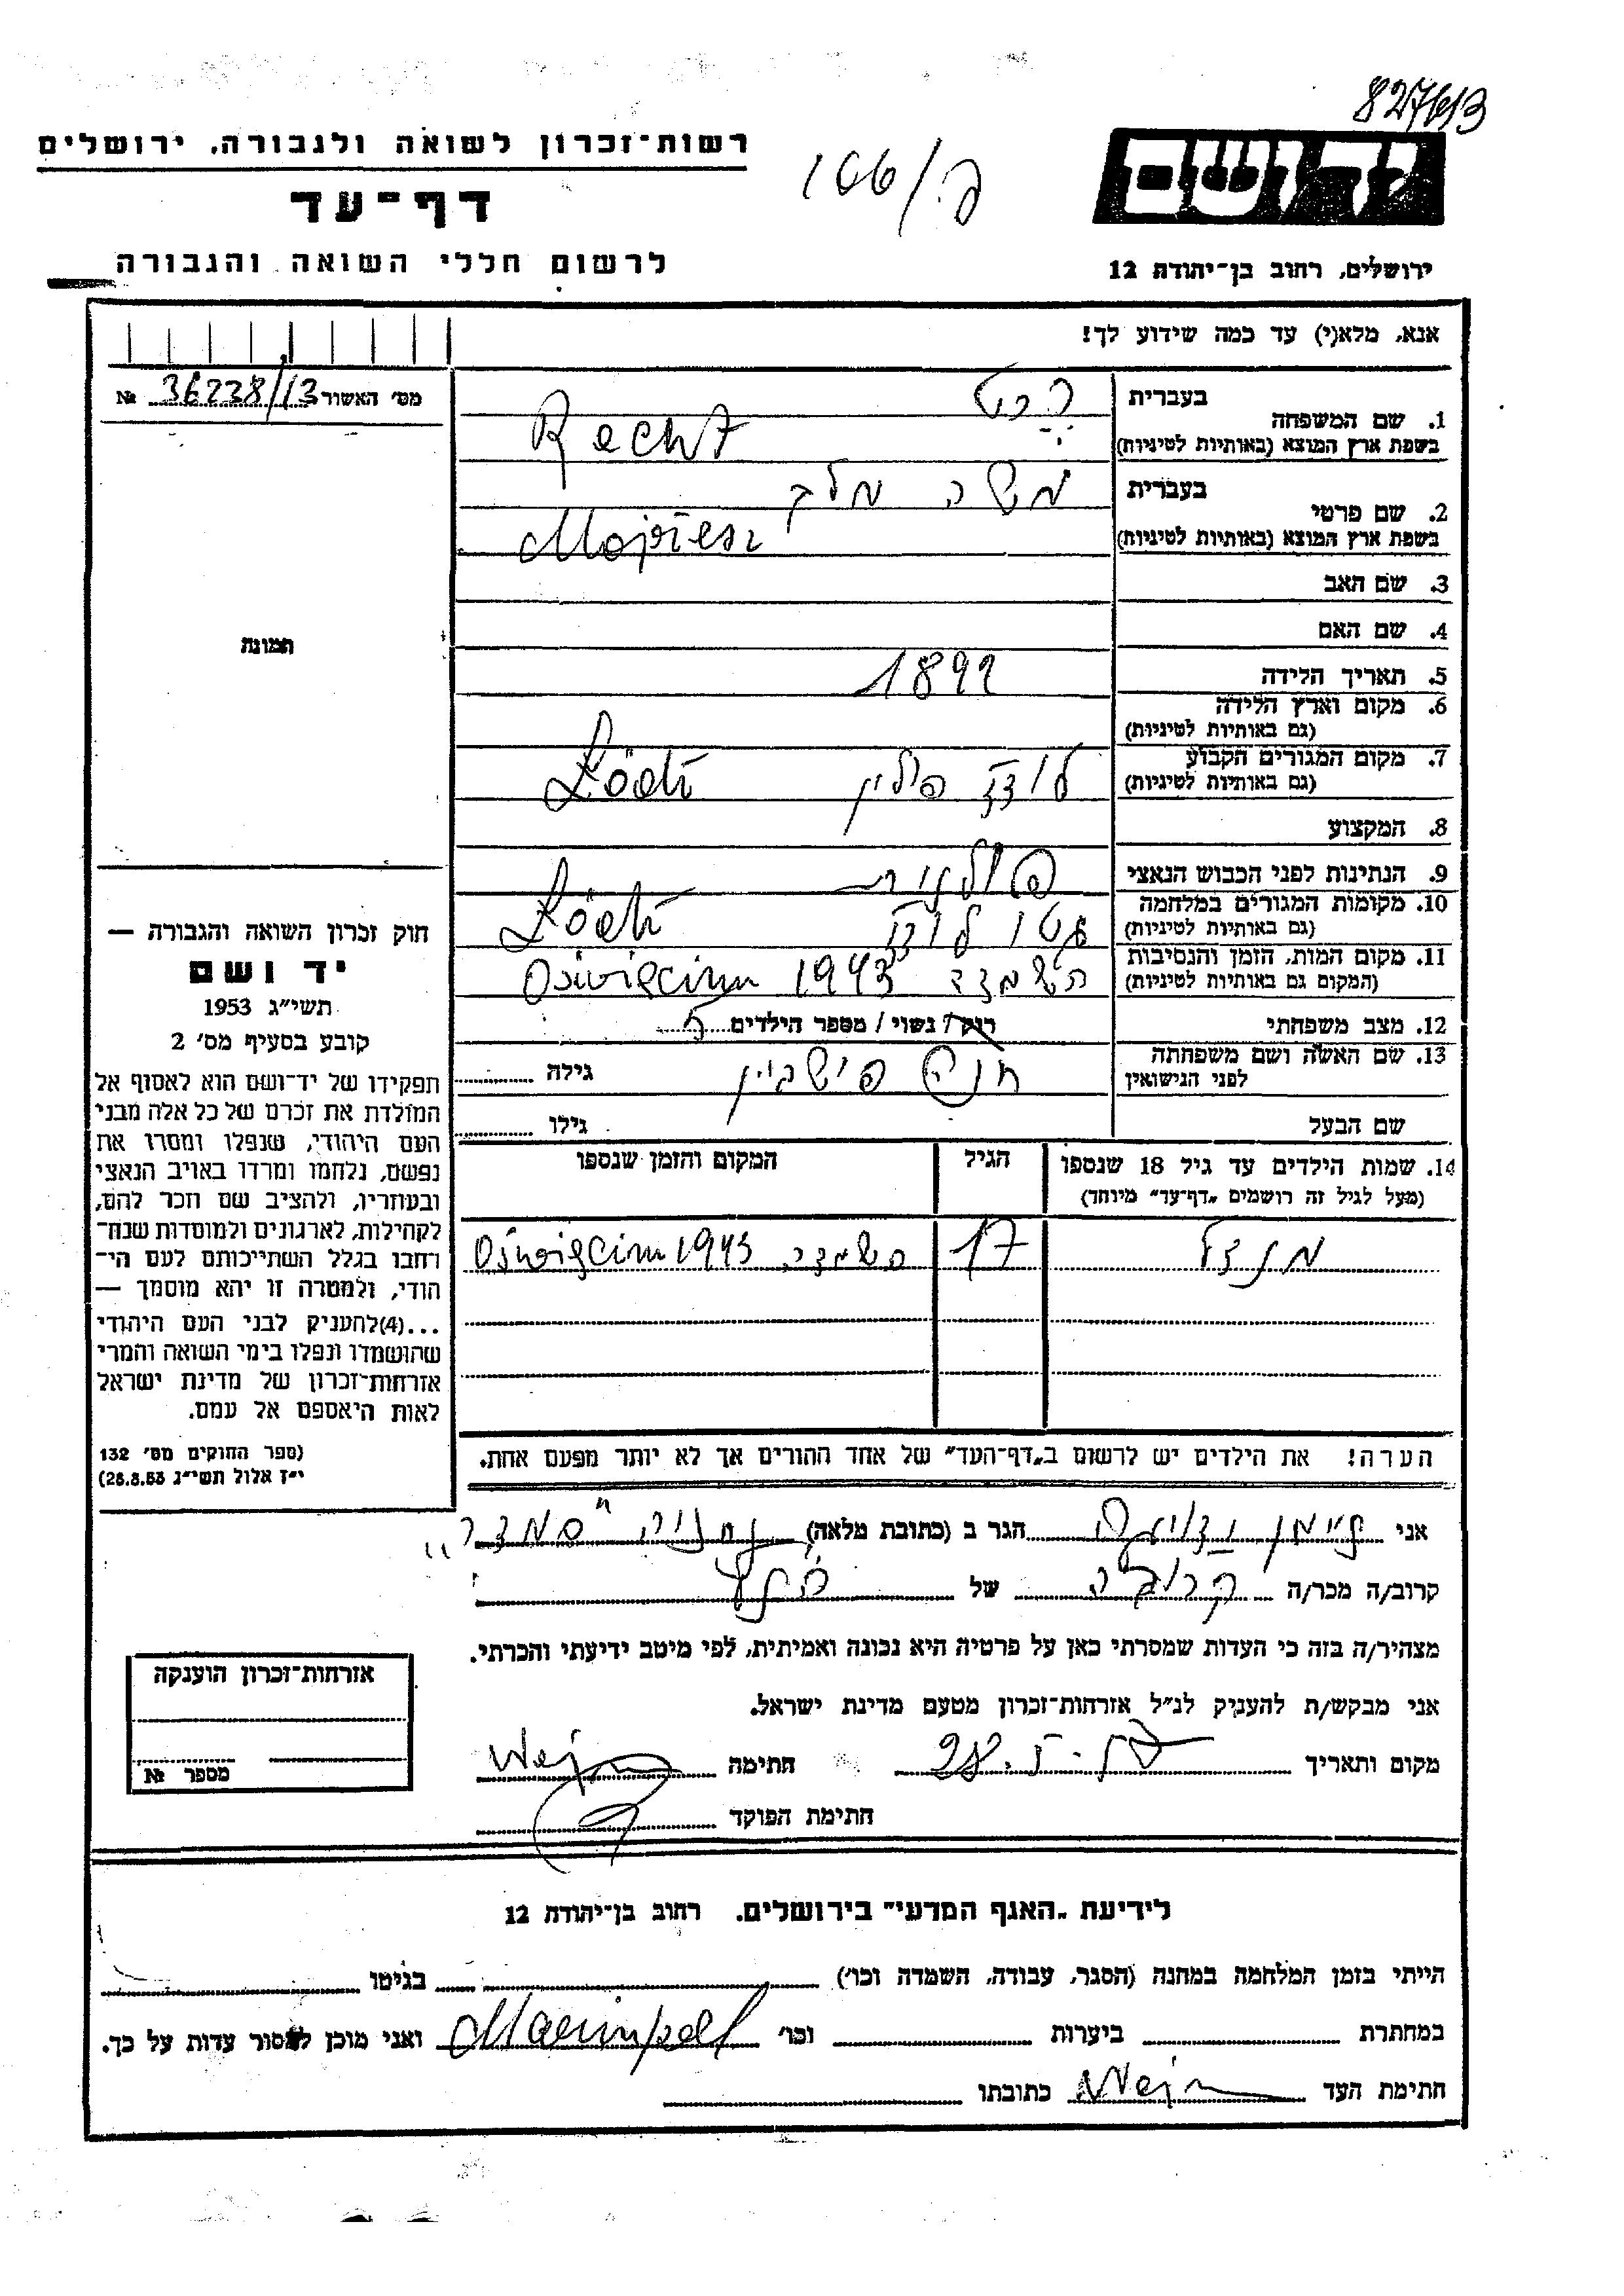 827613
רשות-זכרון לשואה ולגבורה, ירושלים
ק/166
יד ושם
דף-עד
לרשום חללי השואה והגבורה
ירושלים, רחוב בן-יהודה 12
אנא, מלא(י) עד כמה שידוע לך!
מס' האשור 36238/13 №
1. שם המשפחה בעברית רכט
בשפת ארץ המוצא (באותיות לטיניות) Recht
2. שם פרטי בעברית משה מלך
בשפת ארץ המוצא (באותיות לטיניות) Mojżesz
3. שם האב
4. שם האם
תמונה
5. תאריך הלידה 1899
6. מקום וארץ הלידה
(גם באותיות לטיניות)
7. מקום המגורים הקבוע לודז פולין Łódź
(גם באותיות לטיניות)
8. המקצוע
9. הנתינות לפני הכבוש הנאצי פולנית
10. מקומות המגורים במלחמה גטו לודז Łódź
(גם באותיות לטיניות)
11. מקום המות, הזמן והנסיבות השמדה 1943 Oświęcim
(המקום גם באותיות לטיניות)
12. מצב משפחתי רוק / נשוי / מספר הילדים 5
13. שם האשה ושם משפחתה
לפני הנישואין גילה
שם הבעל גילו
14. שמות הילדים עד גיל 18 שנספו הגיל המקום והזמן שנספו
(מעל לגיל זה רושמים "דף-עד" מיוחד)
מנדל 17 השמדה 1943 Oświęcim
הערה! את הילדים יש לרשום ב"דף-העד" של אחד ההורים אך לא יותר מפעם אחת.
חוק זכרון השואה והגבורה —
יד ושם
תשי"ג 1953
קובע בסעיף מס' 2
תפקידו של יד-ושם הוא לאסוף אל
המולדת את זכרם של כל אלה מבני
העם היהודי, שנפלו ומסרו את
נפשם, נלחמו ומרדו באויב הנאצי
ובעוזריו, ולהציב שם וזכר להם,
לקהילות, לארגונים ולמוסדות שנח-
רחבו בגלל השתייכותם לעם הי-
הודי, ולמטרה זו יהא מוסמך —
...(4)להעניק לבני העם היהודי
שהושמדו ונפלו בימי השואה והמרי
אזרחות-זכרון של מדינת ישראל
לאות היאספם אל עמם.
(ספר החוקים מס' 132
י"ז אלול תשי"ג 28.8.53)
אני הגר ב (כתובת מלאה)
קרוב/ה מכר/ה קרובה של
מצהיר/ה בזה כי העדות שמסרתי כאן על פרטיה היא נכונה ואמיתית, לפי מיטב ידיעתי והכרתי.
אני מבקש/ת להעניק לנ"ל אזרחות-זכרון מטעם מדינת ישראל.
מקום ותאריך חתימה
חתימת הפוקד
אזרחות-זכרון הוענקה
מספר №
לידיעת "האגף המדעי" בירושלים. רחוב בן-יהודה 12
הייתי בזמן המלחמה במחנה (הסגר, עבודה, השמדה וכו') בגיטו
במחתרת ביערות וכו' ואני מוכן למסור עדות על כך.
חתימת העד כתובתו